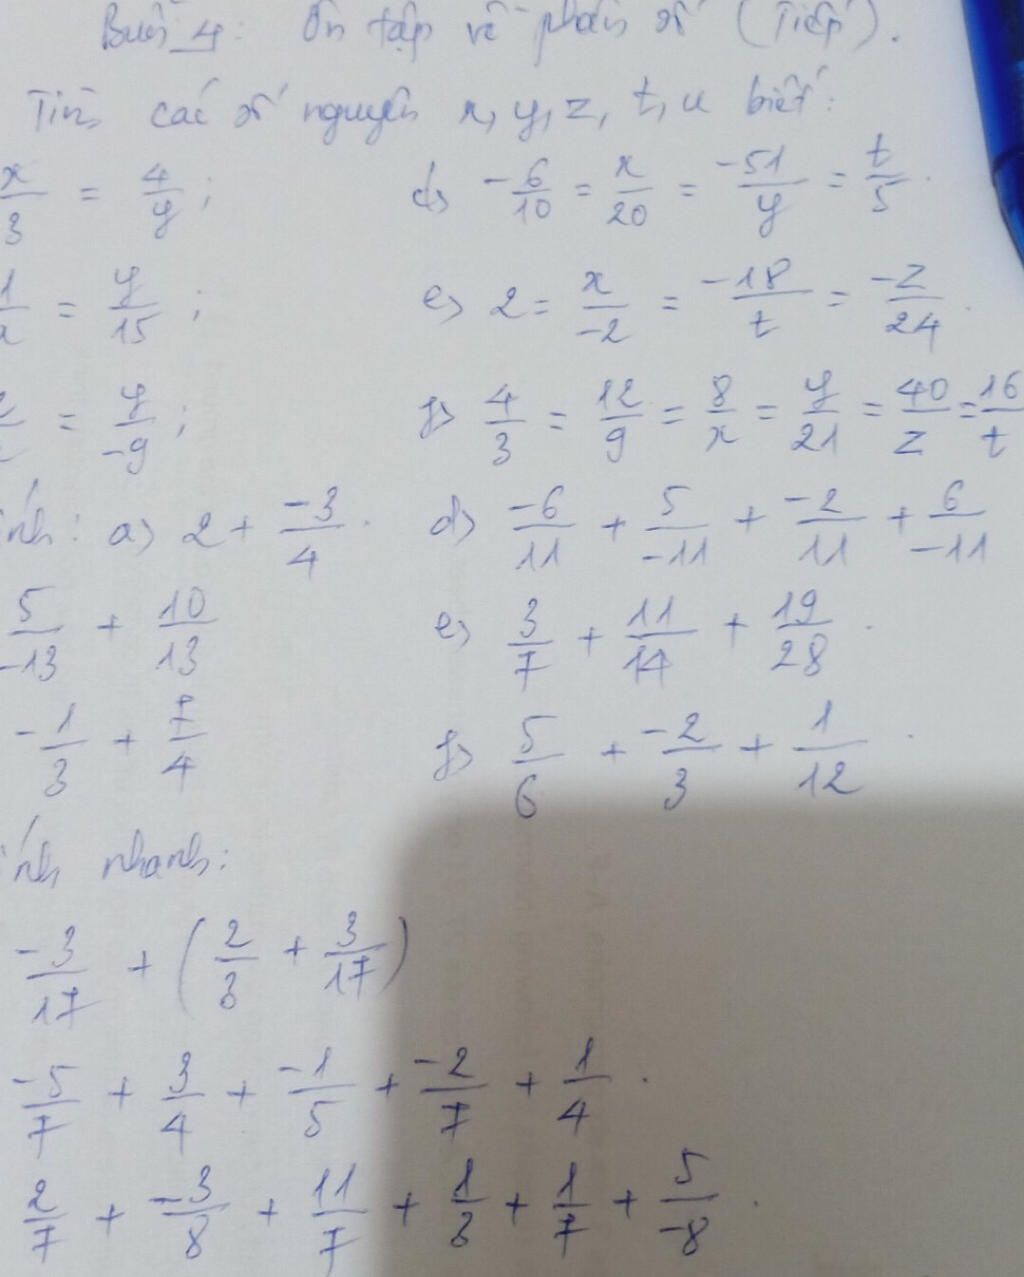 Buổi 4: Ôn tập về phân số (Tiếp).
Tìm các số nguyên x, y, z, t, u biết:
x/3 = 4/y ; d) -6/10 = x/20 = -51/y = t/5.
1/x = y/15 ; e) 2 = x/-2 = -18/t = -z/24.
= y/-9 ; f) 4/3 = 12/9 = 8/x = y/21 = 40/z = 16/t
ính: a) 2 + -3/4. d) -6/11 + 5/-11 + -2/11 + 6/-11
5/-13 + 10/13 e) 3/7 + 11/14 + 19/28.
-1/3 + 7/4 f) 5/6 + -2/3 + 1/12.
ính nhanh:
-3/17 + (2/3 + 3/17)
-5/7 + 3/4 + -1/5 + -2/7 + 1/4.
2/7 + -3/8 + 11/7 + 1/3 + 1/7 + 5/-8.